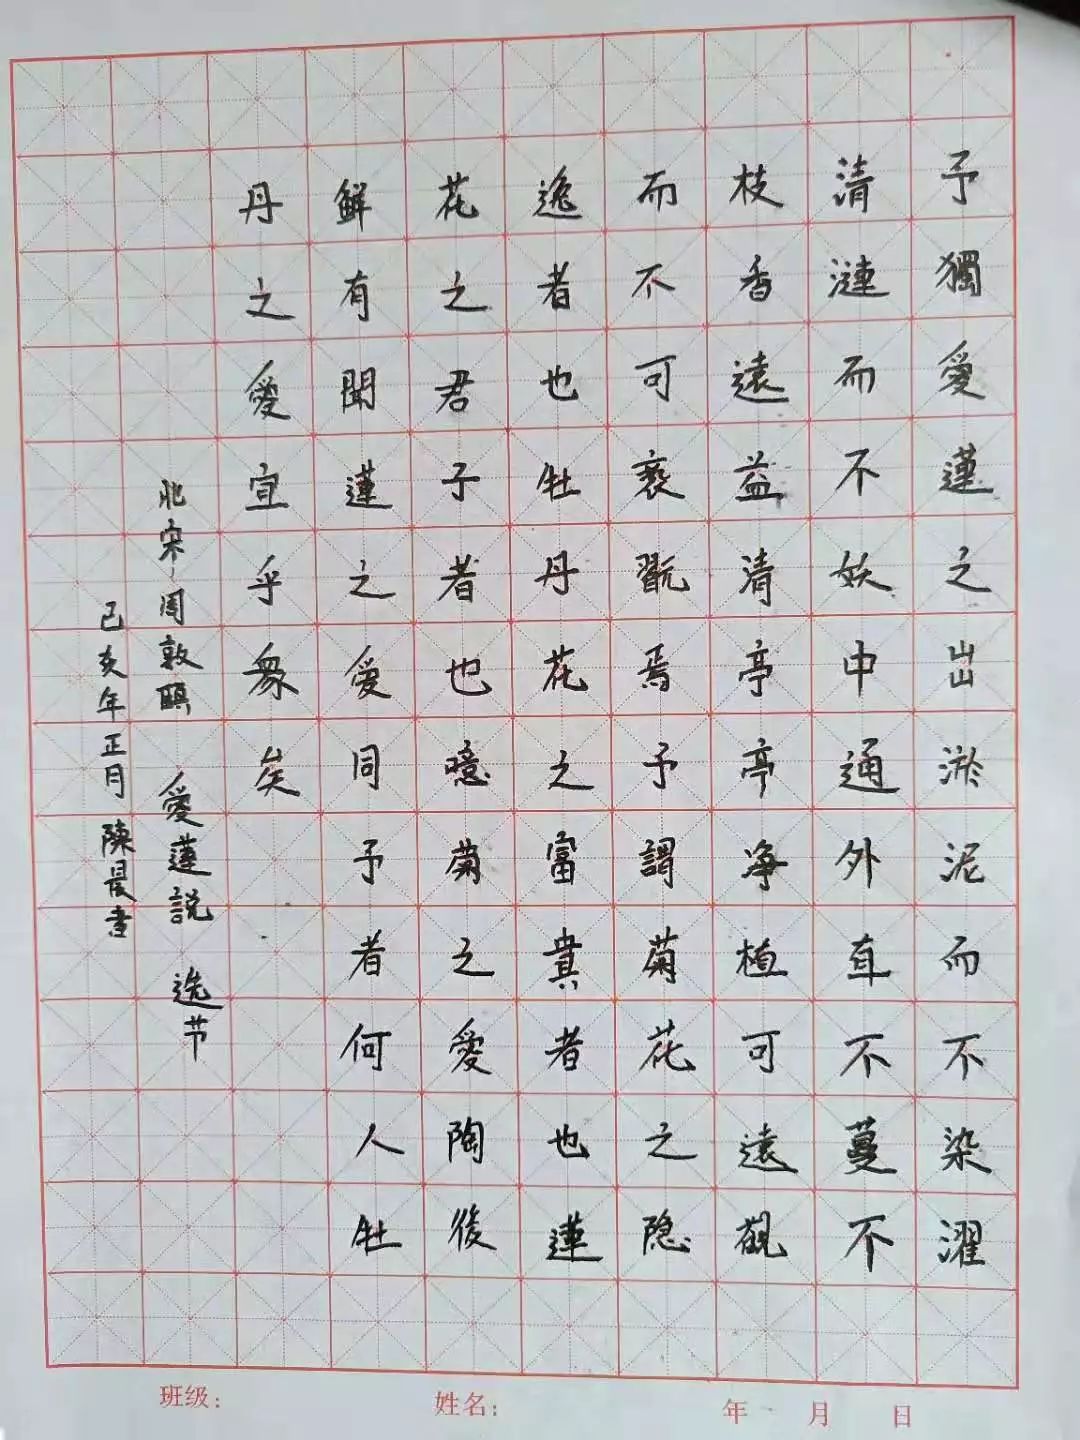 予獨愛蓮之出淤泥而不染濯
清漣而不妖中通外直不蔓不
枝香遠益清亭亭净植可遠觀
而不可褻翫焉予謂菊花之隐
逸者也牡丹花之富貴者也蓮
花之君子者也噫菊之愛陶後
鮮有聞蓮之愛同予者何人牡
丹之愛宜乎衆矣
北宋周敦頤 愛蓮説 选节
己亥年正月 陳晨書
班级： 姓名： 年 月 日